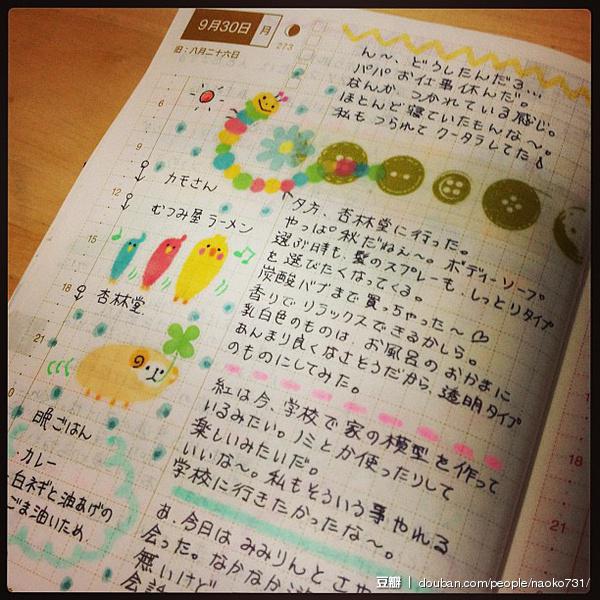 9月30日 月
旧:八月二十六日
273
6
9
カモさん
12
むつみ屋ラーメン
15
18
杏林堂
21
0
晩ごはん
・カレー
・白ネギと油あげの
ごま油いため
ん〜、どうしたんだろ…
パパお仕事休んだ。
なんか、つかれている感じ。
ほとんど寝ていたもんな〜。
私もつられてクータラしてた
夕方、杏林堂に行った。
やっぱ秋だねぇ〜。ボディーソープ
選ぶ時も、髪のスプレーも、しっとりタイプ
を選びたくなってくる。
炭酸バブまで買っちゃった〜♡
香りでリラックスできるかしら。
乳白色のものは、お風呂のおかまに
あんまり良くなさそうだから、透明タイプ
のものにしてみた。
紅は今、学校で家の模型を作って
いるみたい。ノミとか使ったりして
楽しいみたいだ。
いいな〜。私もそういう事やれる
学校に行きたかったな〜。
あ、今日はみみりんとさや
会った。なかなか
無いけど
会話
18
21
豆瓣 | douban.com/people/naoko731/